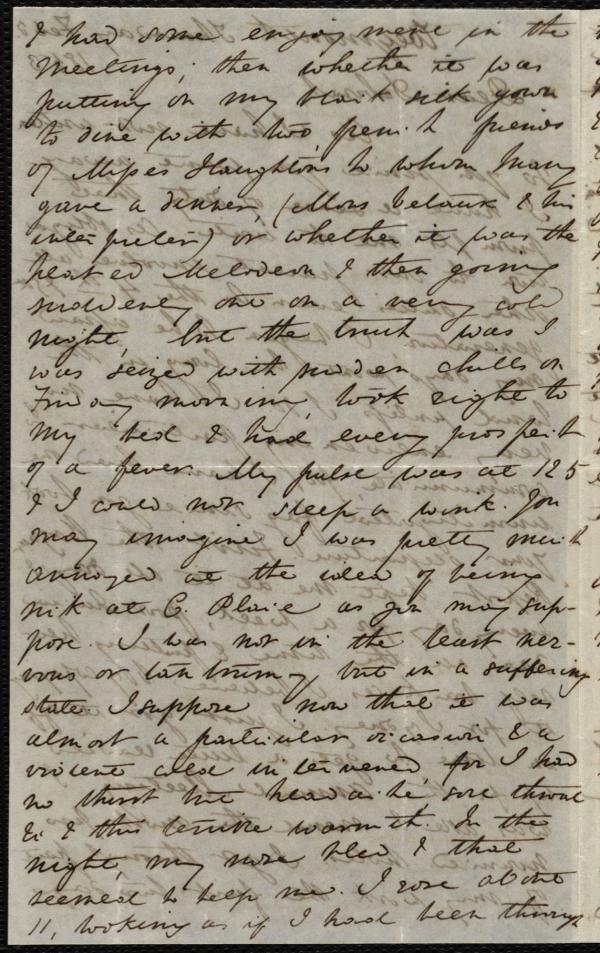 I had some enjoyment in the
meetings; then whether it was
putting on my black silk gown
to dine with two French friends
of Misses Haughton's to whom Mary
gave a dinner, (Mons & his
interpreter) or whether it was the
heated Melodeon & then going
suddenly out on a very cold
night, but the truth was I
was seized with sudden chills on
Friday morning, took right to
my bed & had every prospect
of a fever. My pulse was at 125
& I could not sleep a wink. You
may imagine I was pretty much
annoyed at the idea of being
sick at C. Place as you may sup-
pose. I was not in the least ner-
vous or tantrum-y but in a suffering
state. I suppose now that it was
almost a particular occasion & a
violent cold intervened, for I had
no thirst but headache, sore throat
&c & this terrible warmth. In the
night, my nose bled & that
seemed to help me. I rose about
11, looking as if I had been through